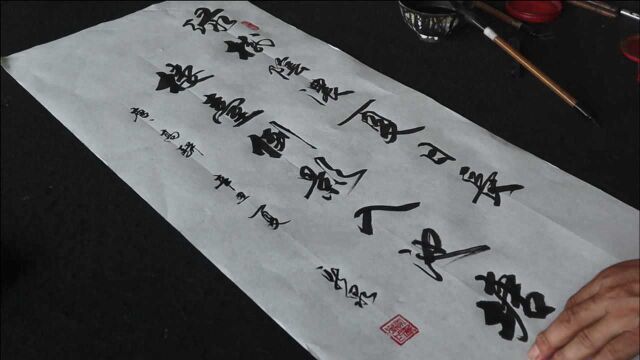 綠樹陰濃夏日長
樓臺倒影入池塘
唐 高駢 辛丑夏